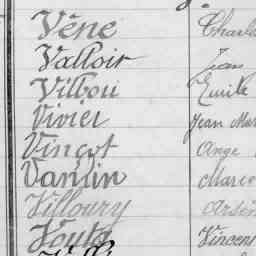 Vène Charl
Valloir Jean
Vilboui Emile
Vivier Jean Mar
Vinçot Ange
Vanlin Marce
Villoury Arsèn
Voută Vincent